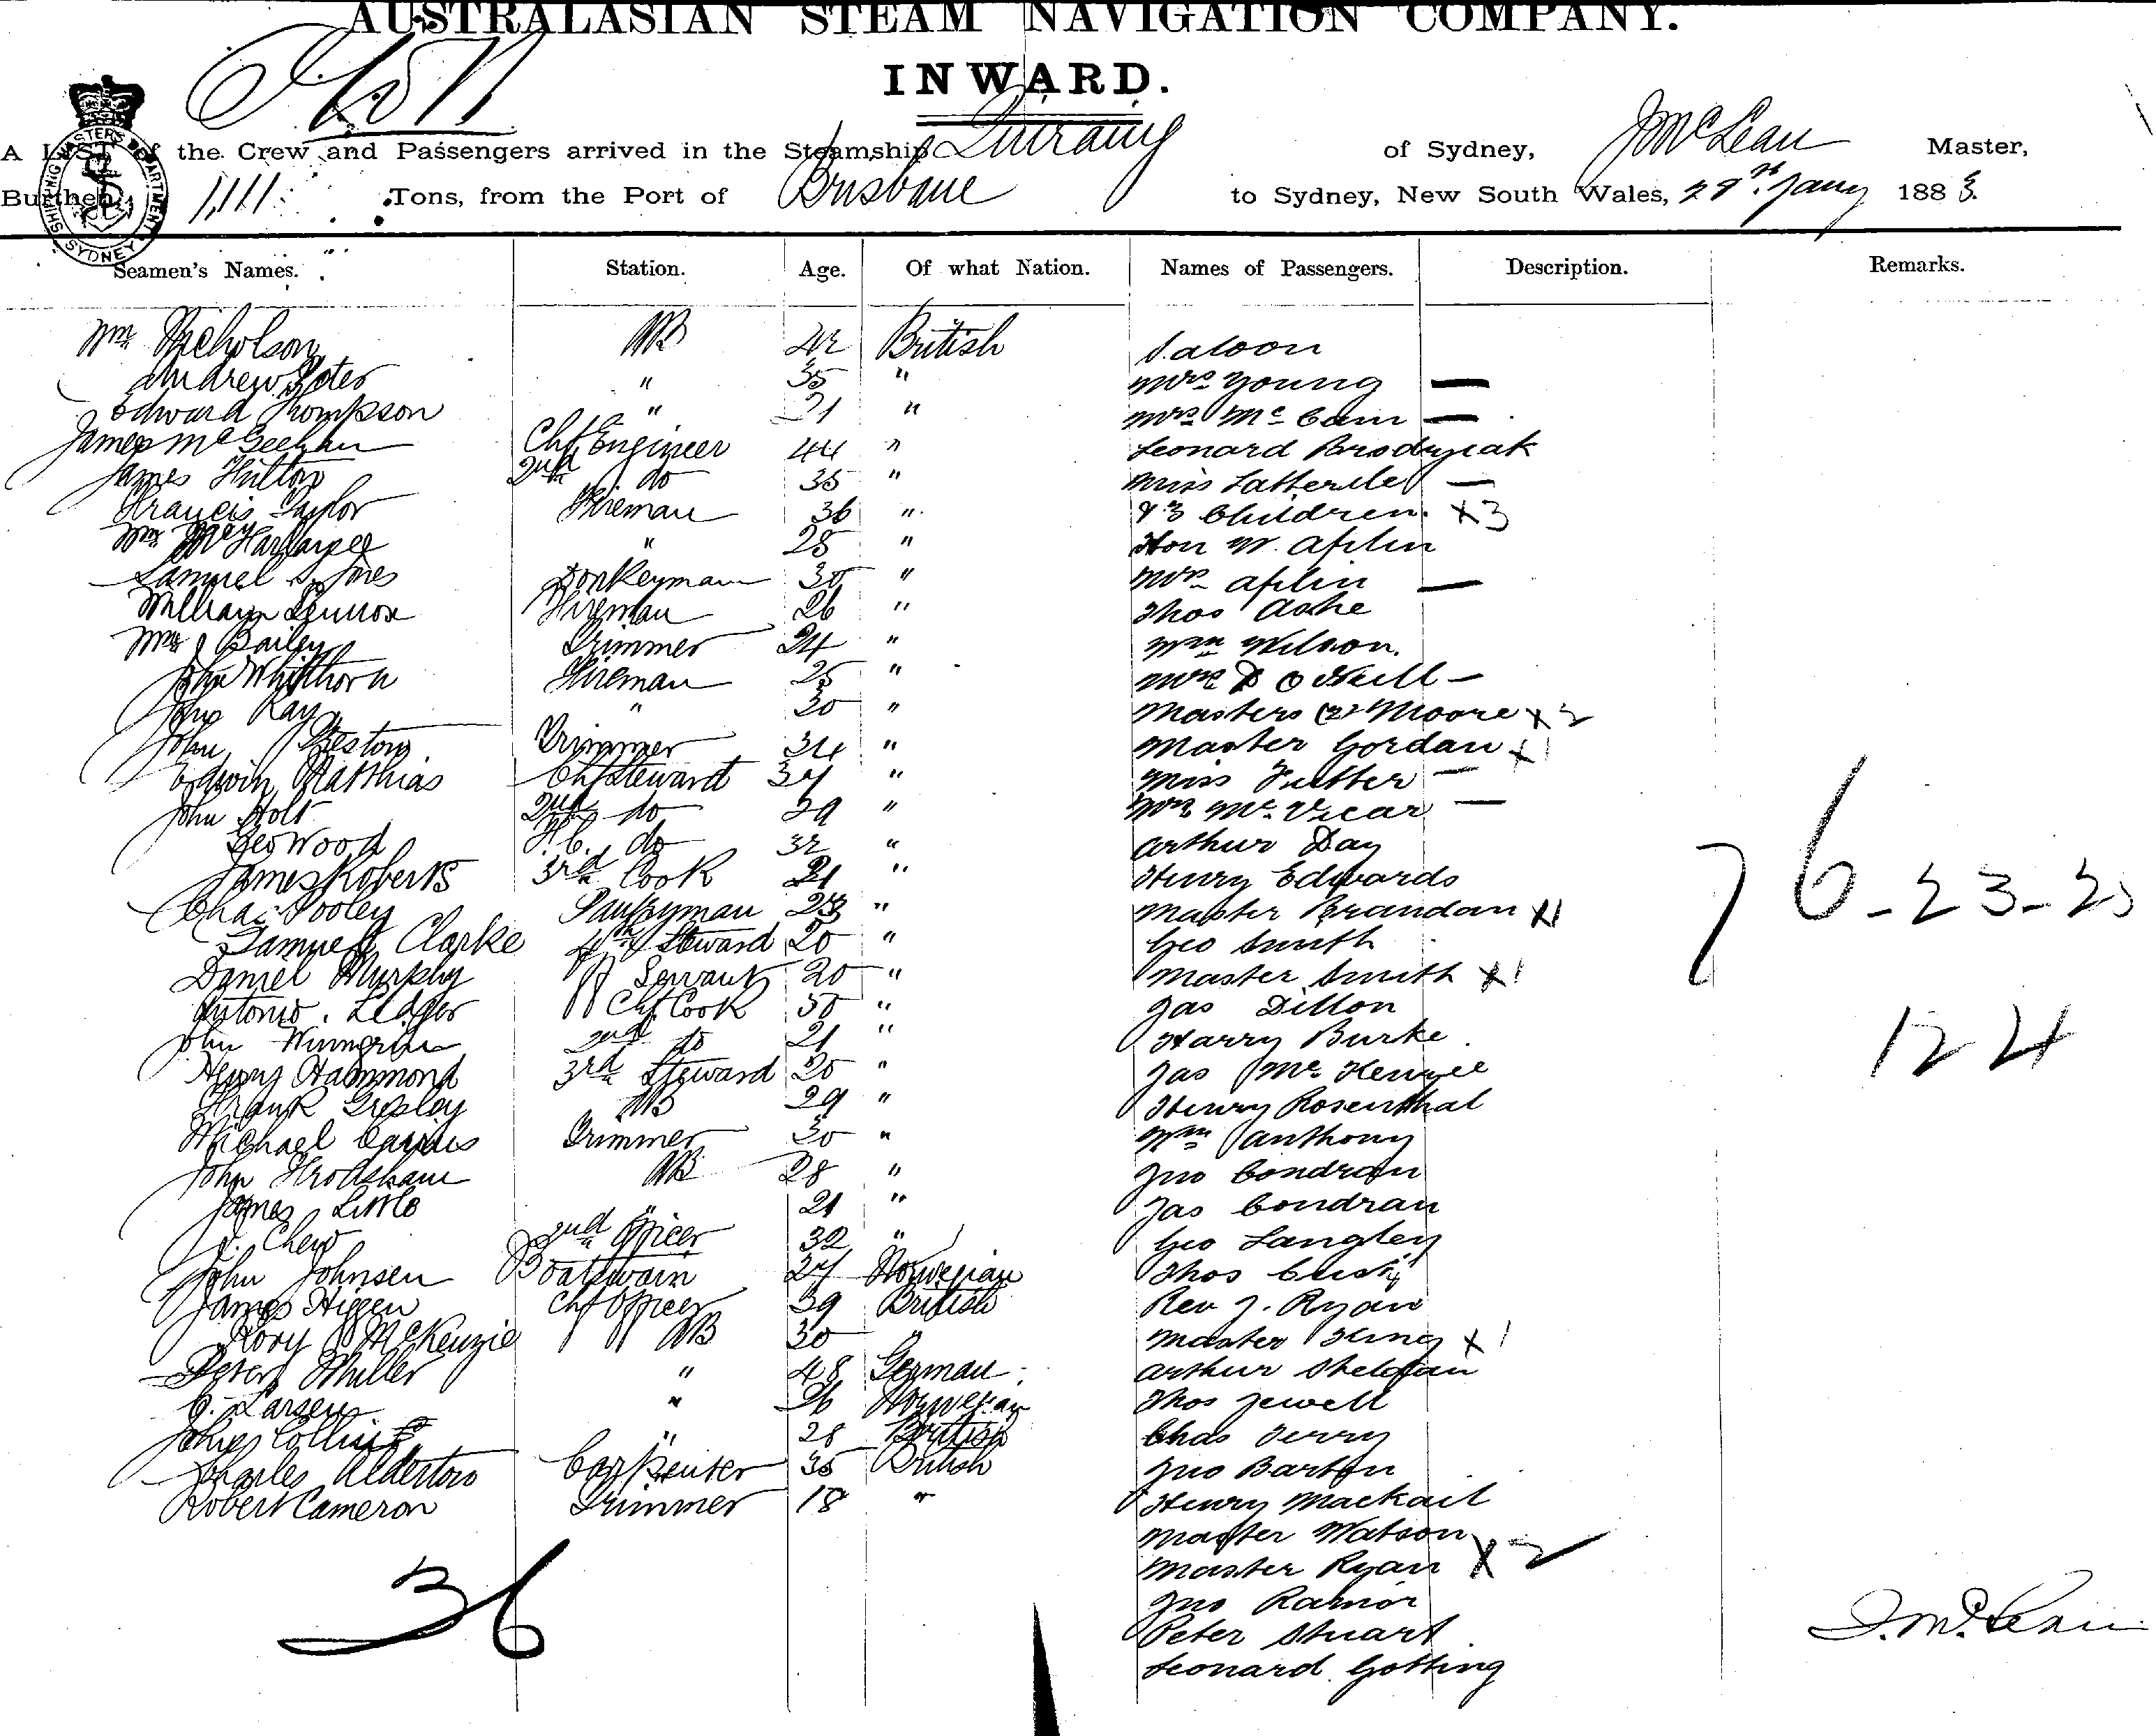 AUSTRALASIAN STEAM NAVIGATION COMPANY.
INWARD.
A LIST of the Crew and Passengers arrived in the Steamship Quiraing of Sydney, J McLean Master,
Burthen 1,111 Tons, from the Port of Brisbane to Sydney, New South Wales, 28th Jany 1883.
SHIPPING MASTERS DEPARTMENT SYDNEY
Seamen's Names. Station. Age. Of what Nation. Names of Passengers. Description. Remarks.
Wm Nicholson AB 42 British Saloon
Andrew 35 " Mrs Young —
Edward Thompson " 21 " Mrs Mc —
James McGeehan Chf Engineer 44 " Leonard
James Hutton 2nd do 35 " Miss —
Francis Taylor Fireman 36 " & 3 Children. x3
Wm " 28 " Hon W. Aplin
Samuel S. Jones Donkeyman 30 " Mrs Aplin —
William Lennox Fireman 26 " Thos Ashe
Wm Bailey Trimmer 24 " Wm Wilson.
John Whitthorn Fireman 25 " Mrs O Neill —
John Kay " 30 " Masters (2) Moore x2
John Preston Trimmer 34 " Master Gordan x1
Edwin Matthias Chf Steward 37 " Miss —
John Holt 2nd do 29 " Mrs McVicar —
Geo Wood F.C. do 32 " Arthur Day
James Roberts 3rd Cook 21 " Henry Edwards
Chas Pooley Pantryman 23 " Master Brandan x1
Samuel Clarke 4th Steward 20 " Geo Smith
Daniel Murphy Servant 20 " Master Smith x1
Antonio Ledger Chf Cook 50 " Jas Dillon
John 2nd do 21 " Harry Burke
Henry Hammond 3rd Steward 20 " Jas McKenzie
Frank AB 29 " Henry Rosenthal
Michael Trimmer 30 " Wm Anthony
John AB 28 " Jno Condran
James Little " 21 " Jas Condran
Chew 2nd Officer 32 " Geo Langley
John Johnsen Boatswain 27 Norwegian Thos
James Higgen Chf Officer 39 British Rev J. Ryan
Rory McKenzie AB 30 " Master King x1
Peter Miller " 48 German Arthur Sheldan
C. Larsen " 26 Norwegian Thos Jewell
Collins " 28 British Chas Terry
Charles Alderton Carpenter 35 British Jno Barton
Robert Cameron Trimmer 18 " Henry Mackail
Master Watson
Master Ryan x2
Jno Rainor
Peter Stuart
Leonard Gotting
76-23-25
124
36
J. McLean